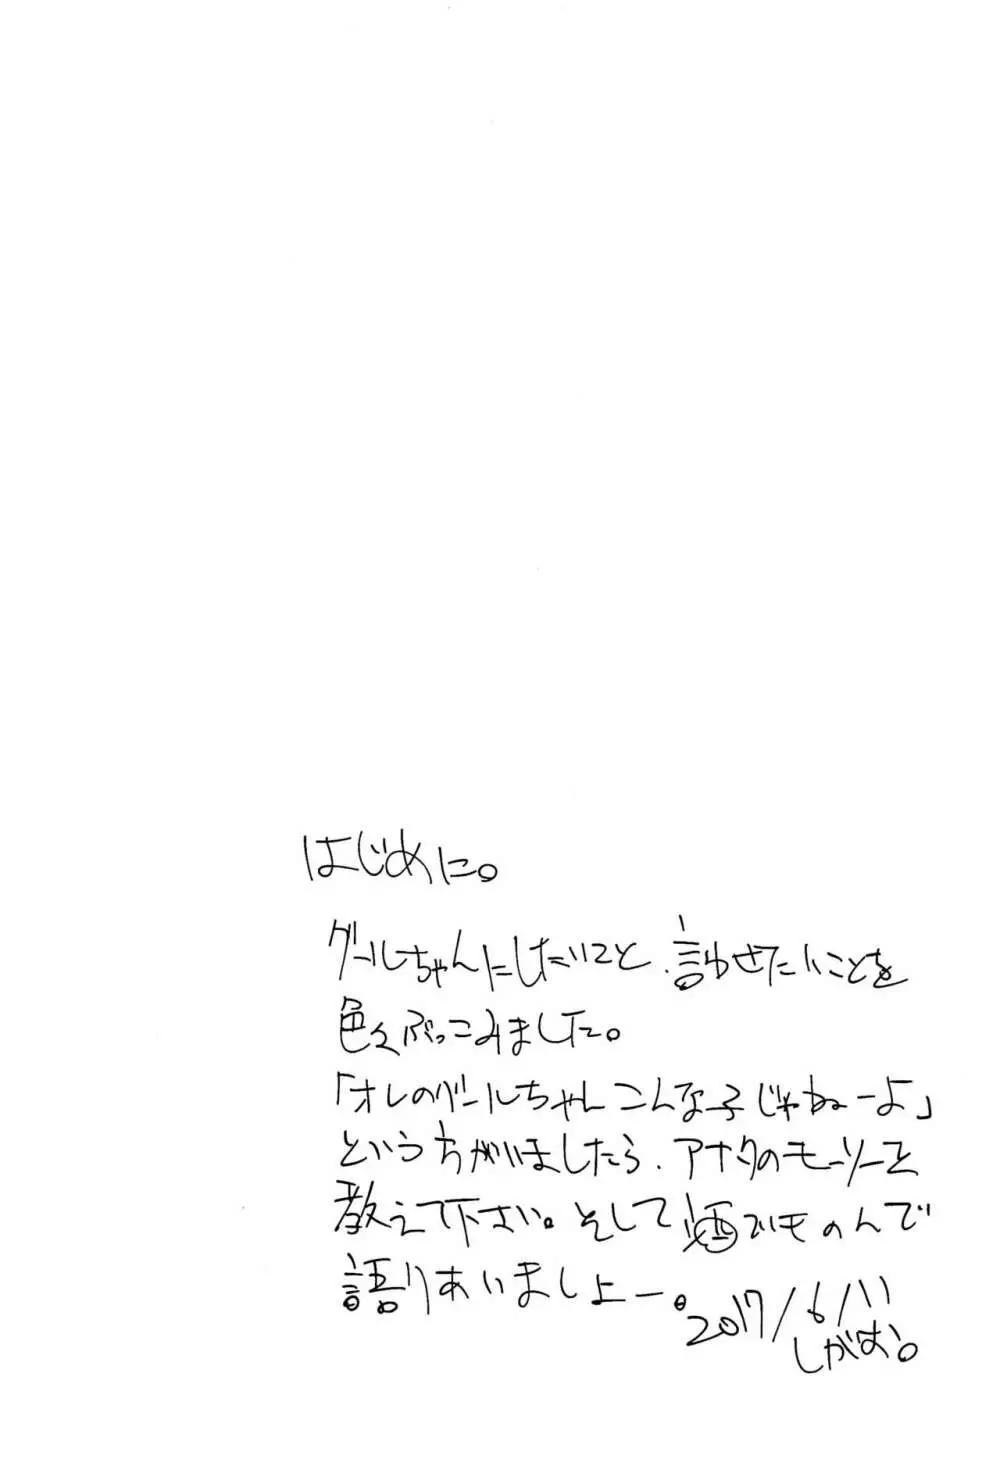 はじめに。
グールちゃんにしたいこと、言わせたいことを
色々ぶっこみました。
「オレのグールちゃんこんな子じゃねーよ」
という方がいましたら、アナタのモーソーを
教えて下さい。そして酒でものんで
語りあいましょー。
2017/6/11
しがはお。